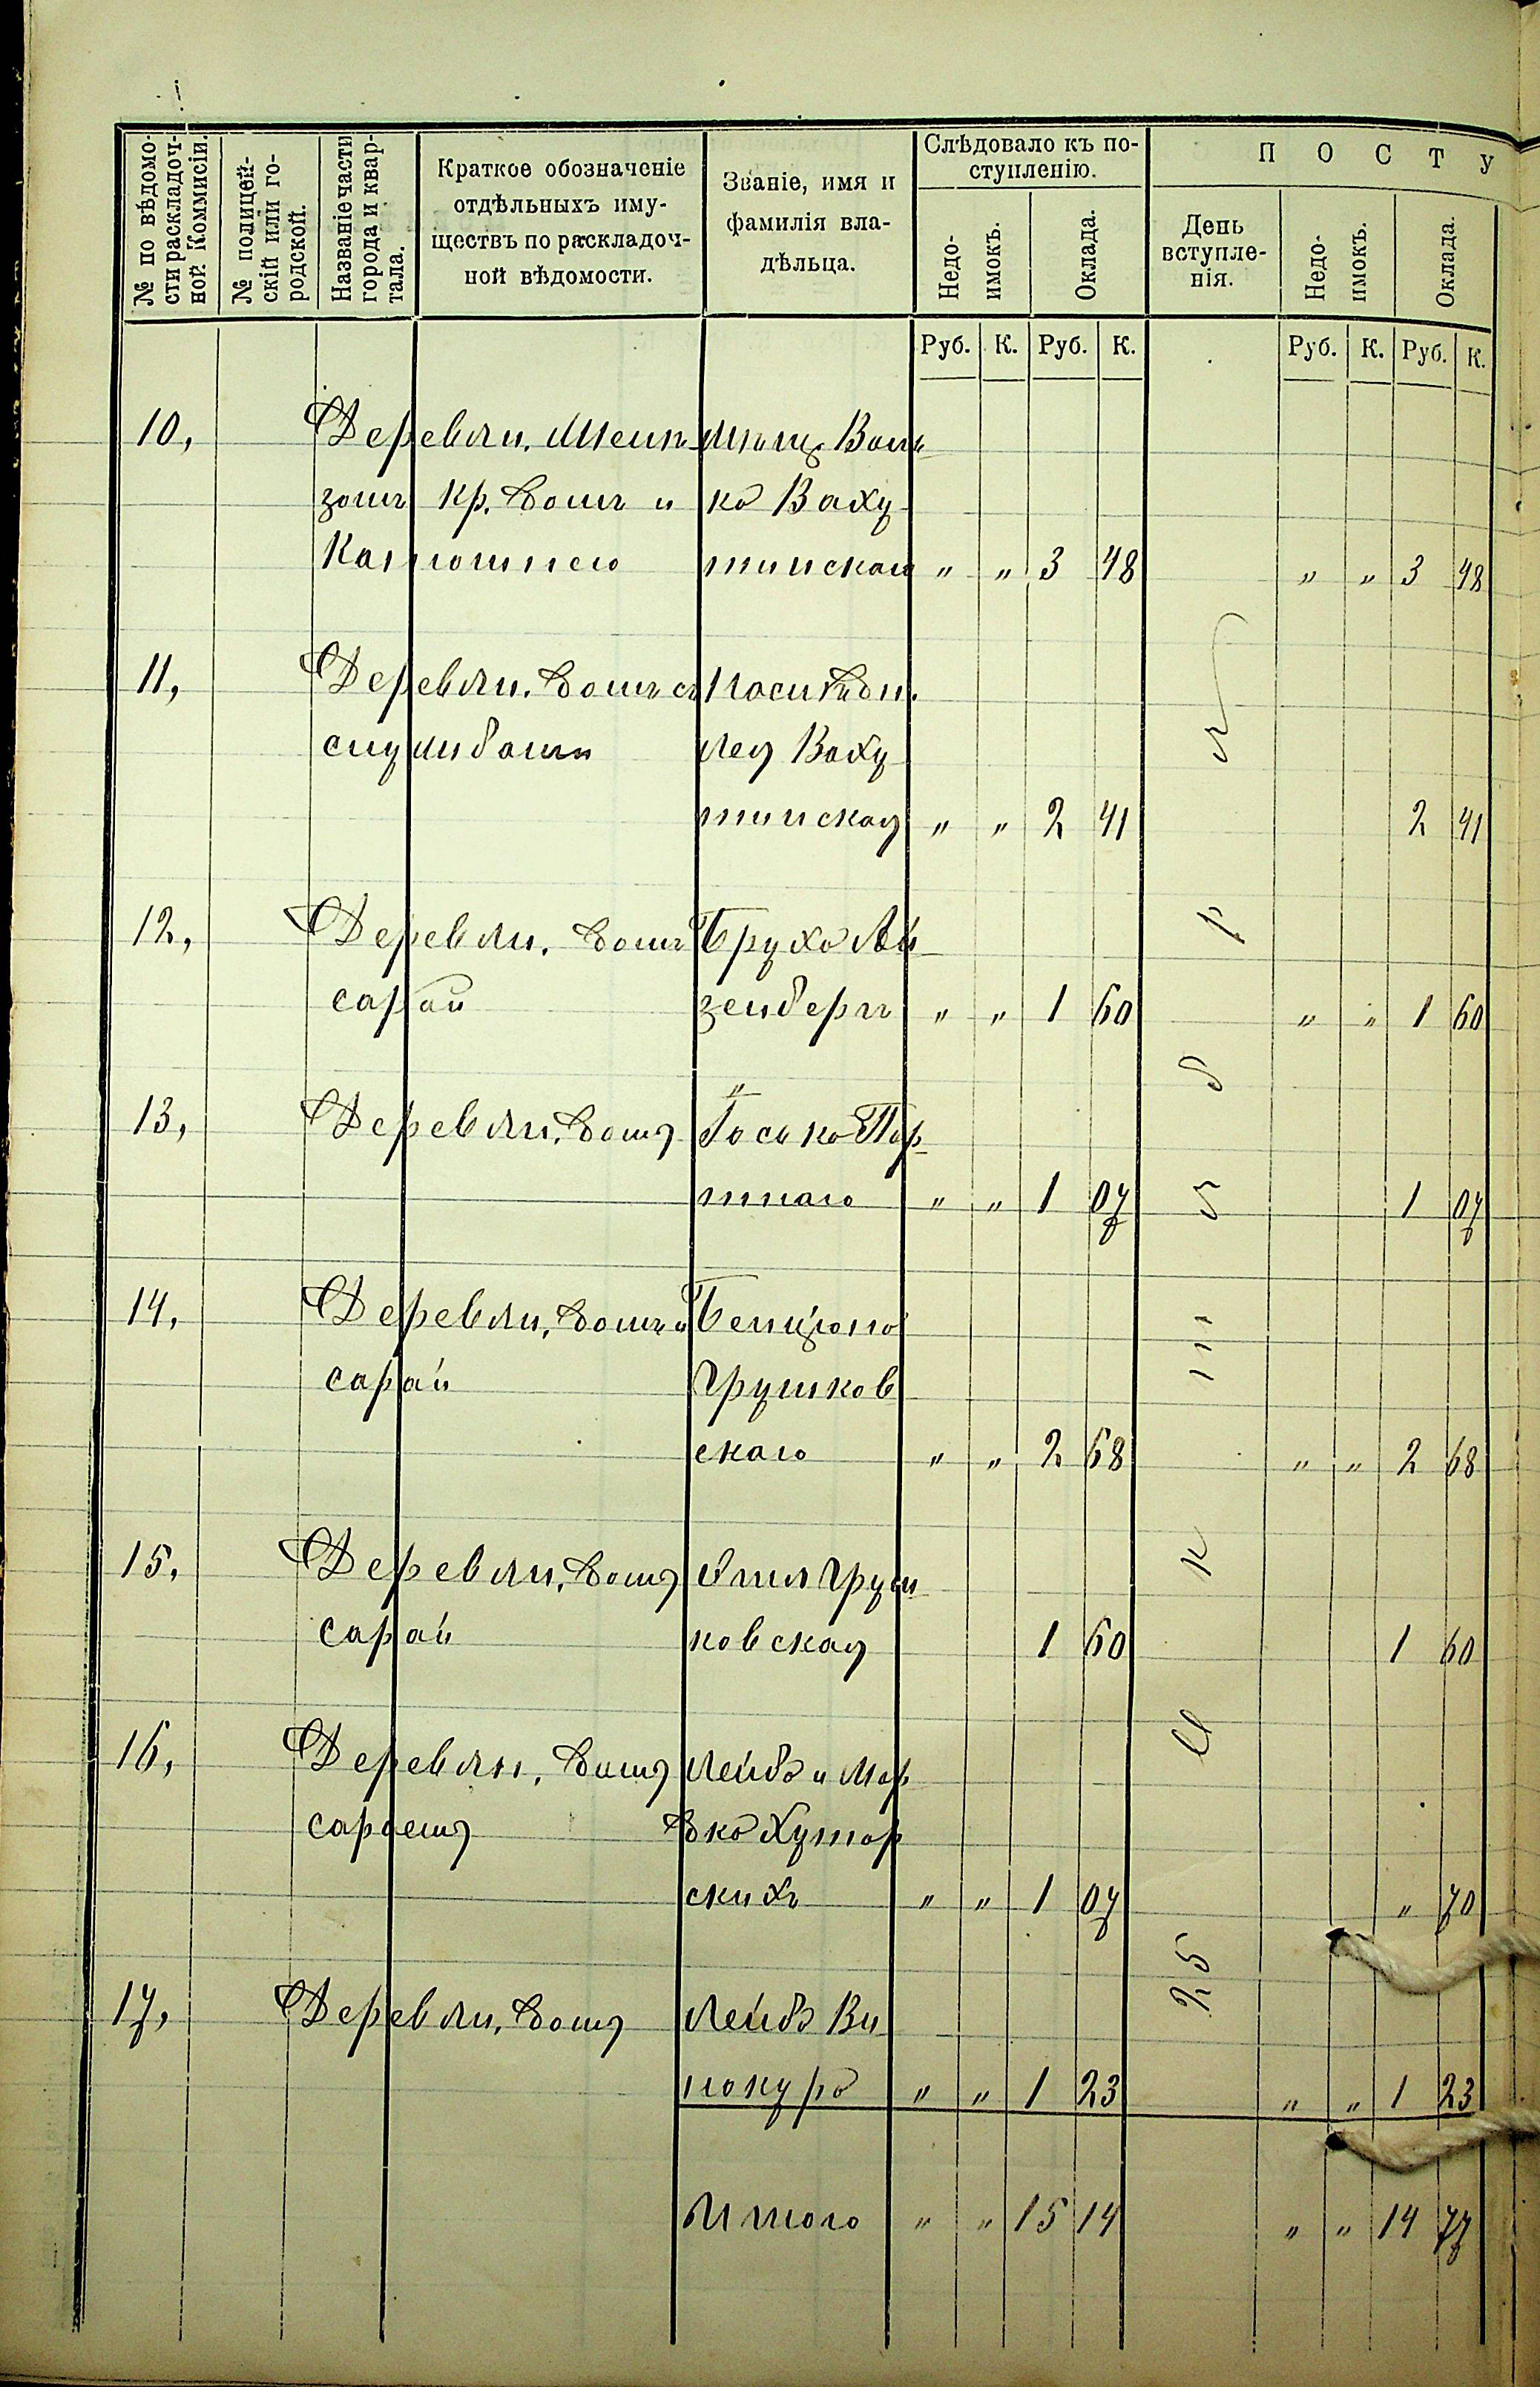 № по вѣдомо-
сти раскладоч-
ной Коммисіи.
№ полицей-
скій или го-
родской.
Названіе части
города и квар-
тала.
Краткое обозначеніе
отдѣльныхъ иму-
ществъ по раскладоч-
ной вѣдомости.
Званіе, имя и
фамилія вла-
дѣльца.
Слѣдовало къ по-
ступленію.
Недо-
имокъ.
Оклада.
П О С Т У
День
вступле-
нія.
Недо-
имокъ.
Оклада.
Руб. К. Руб. К. Руб. К. Руб. К.
10, Деревян.
кр. домъ и
„ „ 3 48 „ „ 3 48
11, Деревян. домъ съ
Ваху
тинская „ „ 2 41 2 41
12, Деревян. домъ
сарай зенбергъ „ „ 1 60 „ „ 1 60
13, Деревян. домъ Іосько
„ „ 1 07 1 07
14, Деревян. домъ и Бенціона
сарай Грушков
скаго „ „ 2 68 „ „ 2 68
15, Деревян. домъ Груш
сарай ковская 1 60 1 60
16, Деревян. домъ Лейба и Мор
сараемъ дко Хутор
скихъ „ „ 1 07 „ 70
17, Деревян. домъ Лейба Ви
нокура „ „ 1 23 „ „ 1 23
Итого „ „ 15 14 „ „ 14 77
25 Октября